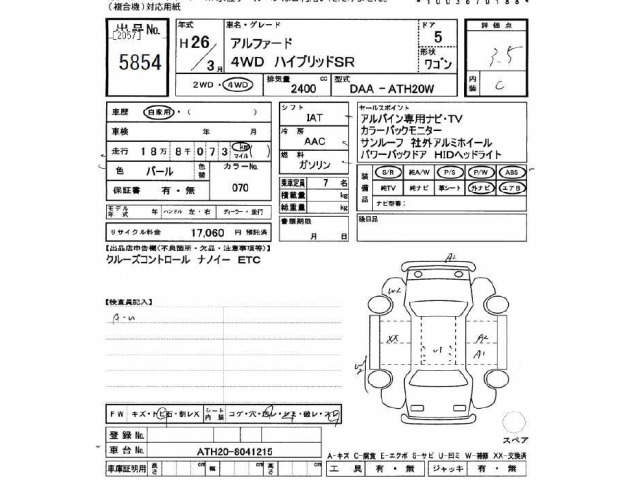 (複合機)対応用紙
出品No.
[2057]
5854
年式
H26
/3月
車名・グレード
アルファード
4WD ハイブリッドSR
ドア
5
形状
ワゴン
評価点
3.5
内装
C
2WD・4WD
排気量
2400 cc
型式
DAA - ATH20W
車歴
自家用・( )
車検 年 月
走行 18万8千073 km マイル ( )
色 パール
色替
カラーNo.
070
保証書 有・無
シフト
IAT
冷房
AAC
燃料
ガソリン
乗車定員 7 名
積載量 kg
総重量 kg
書類期限
月 日
セールスポイント
アルパイン専用ナビ・TV
カラーバックモニター
サンルーフ 社外アルミホイール
パワーバックドア HIDヘッドライト
装備品
S/R 純A/W P/S P/W ABS
純TV 純ナビ 革シート 外ナビ エアB
ナビ型番:
後日品
モデル年式 年 ハンドル 左・右 ディーラー・並行
リサイクル料金 17,060 円 預託済
【出品店申告欄(不良箇所・欠品・注意事項等)】
クルーズコントロール ナノイー ETC
【検査員記入】
A-U
A2
W2
XX
A2
A1
U1
W2
FW キズ・トビ石・割レX シート内装 コゲ・穴・
スペア
登録No.
車台No. ATH20-8041215
A-キズ C-腐食 E-エクボ S-サビ U-凹ミ W-補修 XX-交換済
車庫証明用 長さ cm 幅 cm 高さ cm
工具 有・無 ジャッキ 有・無